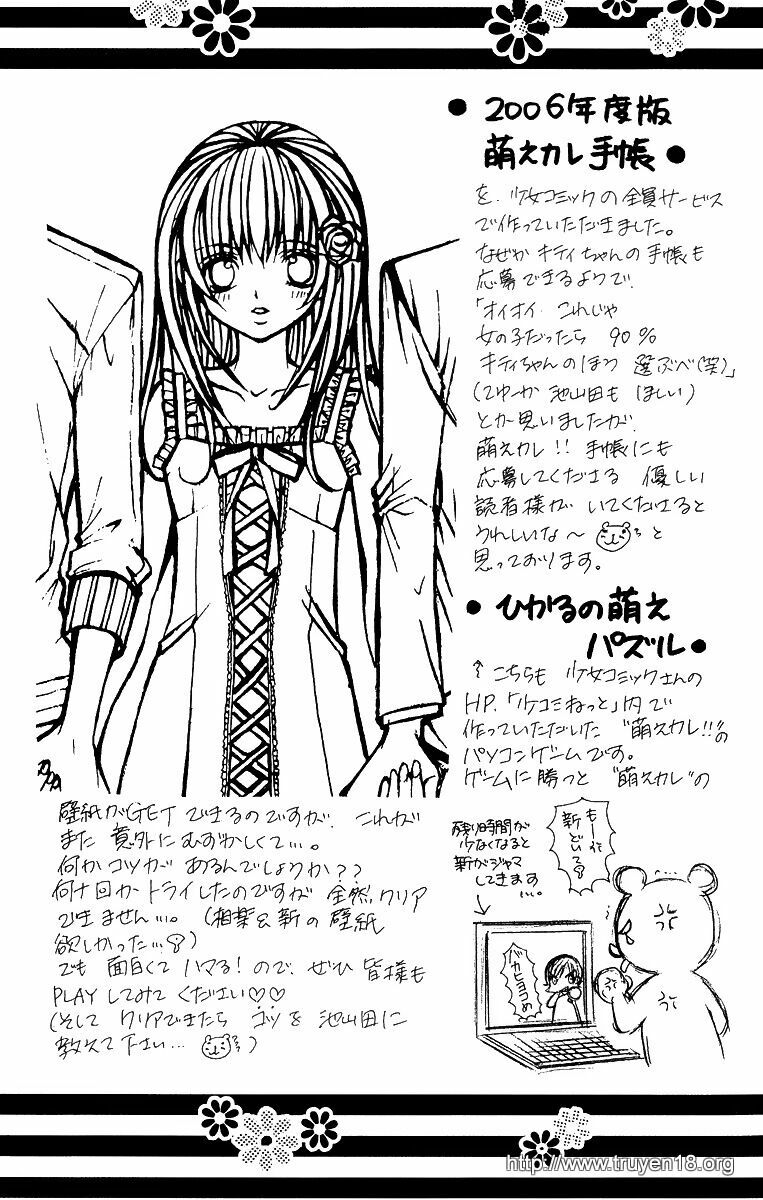 ●2006年度版
萌えカレ手帳●
を、少女コミックの全員サービス
で作っていただきました。
なぜか キティちゃんの手帳も
応募できるようで、
「オイオイ これじゃ
女の子だったら 90%
キティちゃんのほう 選ぶべ(笑)」
(てゆーか 池山田も ほしい)
とか思いましたが、
萌えカレ!! 手帳にも
応募してくださる 優しい
読者様が いてくださると
うれしいな〜 と
思っております。
●ひかるの萌え
パズル●
↑こちらも 少女コミックさんの
HP、「少コミねっと」内で
作っていただいた "萌えカレ!!"の
パソコンゲームです。
ゲームに勝つと "萌えカレ"の
壁紙がGETできるのですが、これが
また 意外にむずかしくて…。
何かコツが あるんでしょうか??
何十回かトライしたのですが 全然クリア
できません…。(相葉&新の壁紙
欲しかった…)
でも 面白くて ハマる!ので、ぜひ 皆様も
PLAYしてみて ください♡♡
(そして クリアできたら コツを 池山田に
教えて下さい… )
残り時間が
少なくなると
新がジャマ
してきます
…。
もーっ
新
どいてろ
http://www.truyen18.org